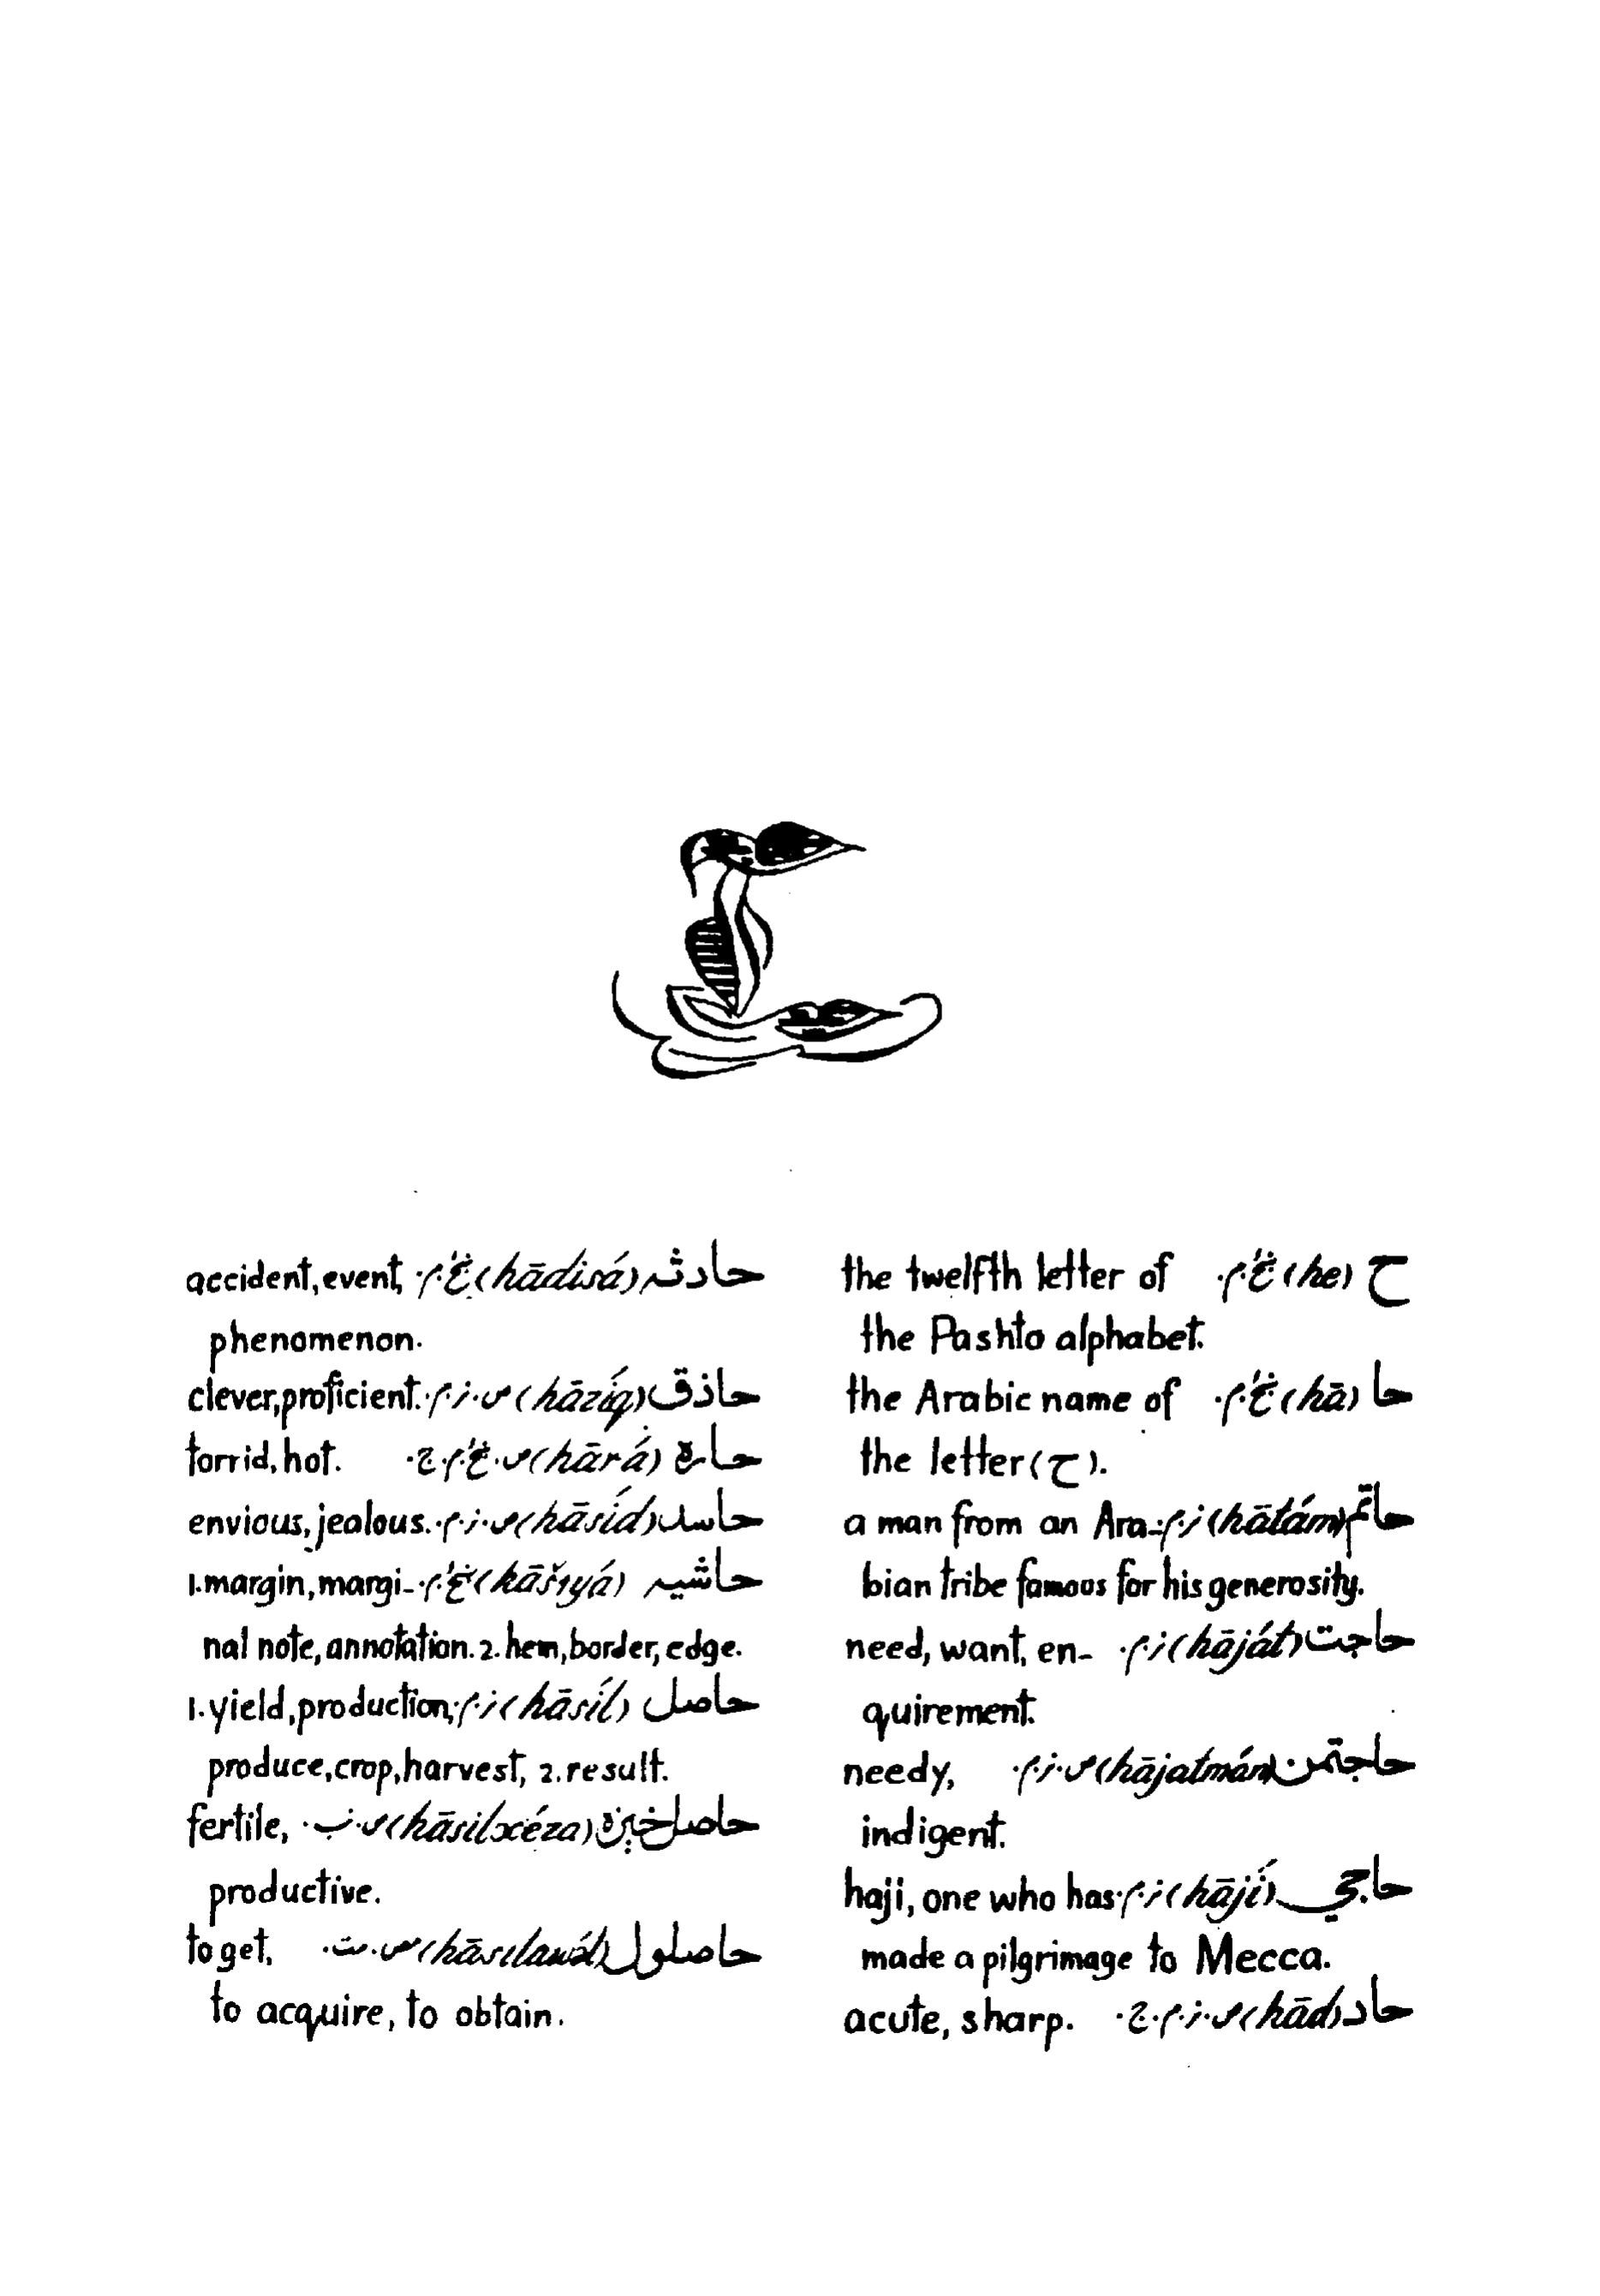 ح (he) the twelfth letter of
the Pashto alphabet.
حا (hā) the Arabic name of
the letter (ح).
حاتم (hātám) ز.م. a man from an Ara-
bian tribe famous for his generosity.
حاجت (hāját) ز.م. need, want, en-
quirement.
حاجتمن (hājatmán) ص.ز.م. needy,
indigent.
حاجي (hājí) ز.م. haji, one who has
made a pilgrimage to Mecca.
حاد (hād) ص.ز.م.ج. acute, sharp.
حادثه (hādisá) accident, event,
phenomenon.
حاذق (hāzíq) ص.ز.م. clever, proficient.
حاره (hārá) torrid, hot.
حاسد (hāsíd) ص.ز.م. envious, jealous.
حاشيه (hāšıyá) 1. margin, margi-
nal note, annotation. 2. hem, border, edge.
حاصل (hāsíl) ز.م. 1. yield, production,
produce, crop, harvest, 2. result.
حاصلخېزه (hāsilxéza) ص.ب. fertile,
productive.
حاصلول (hāsılawə́l) ص.ت. to get,
to acquire, to obtain.